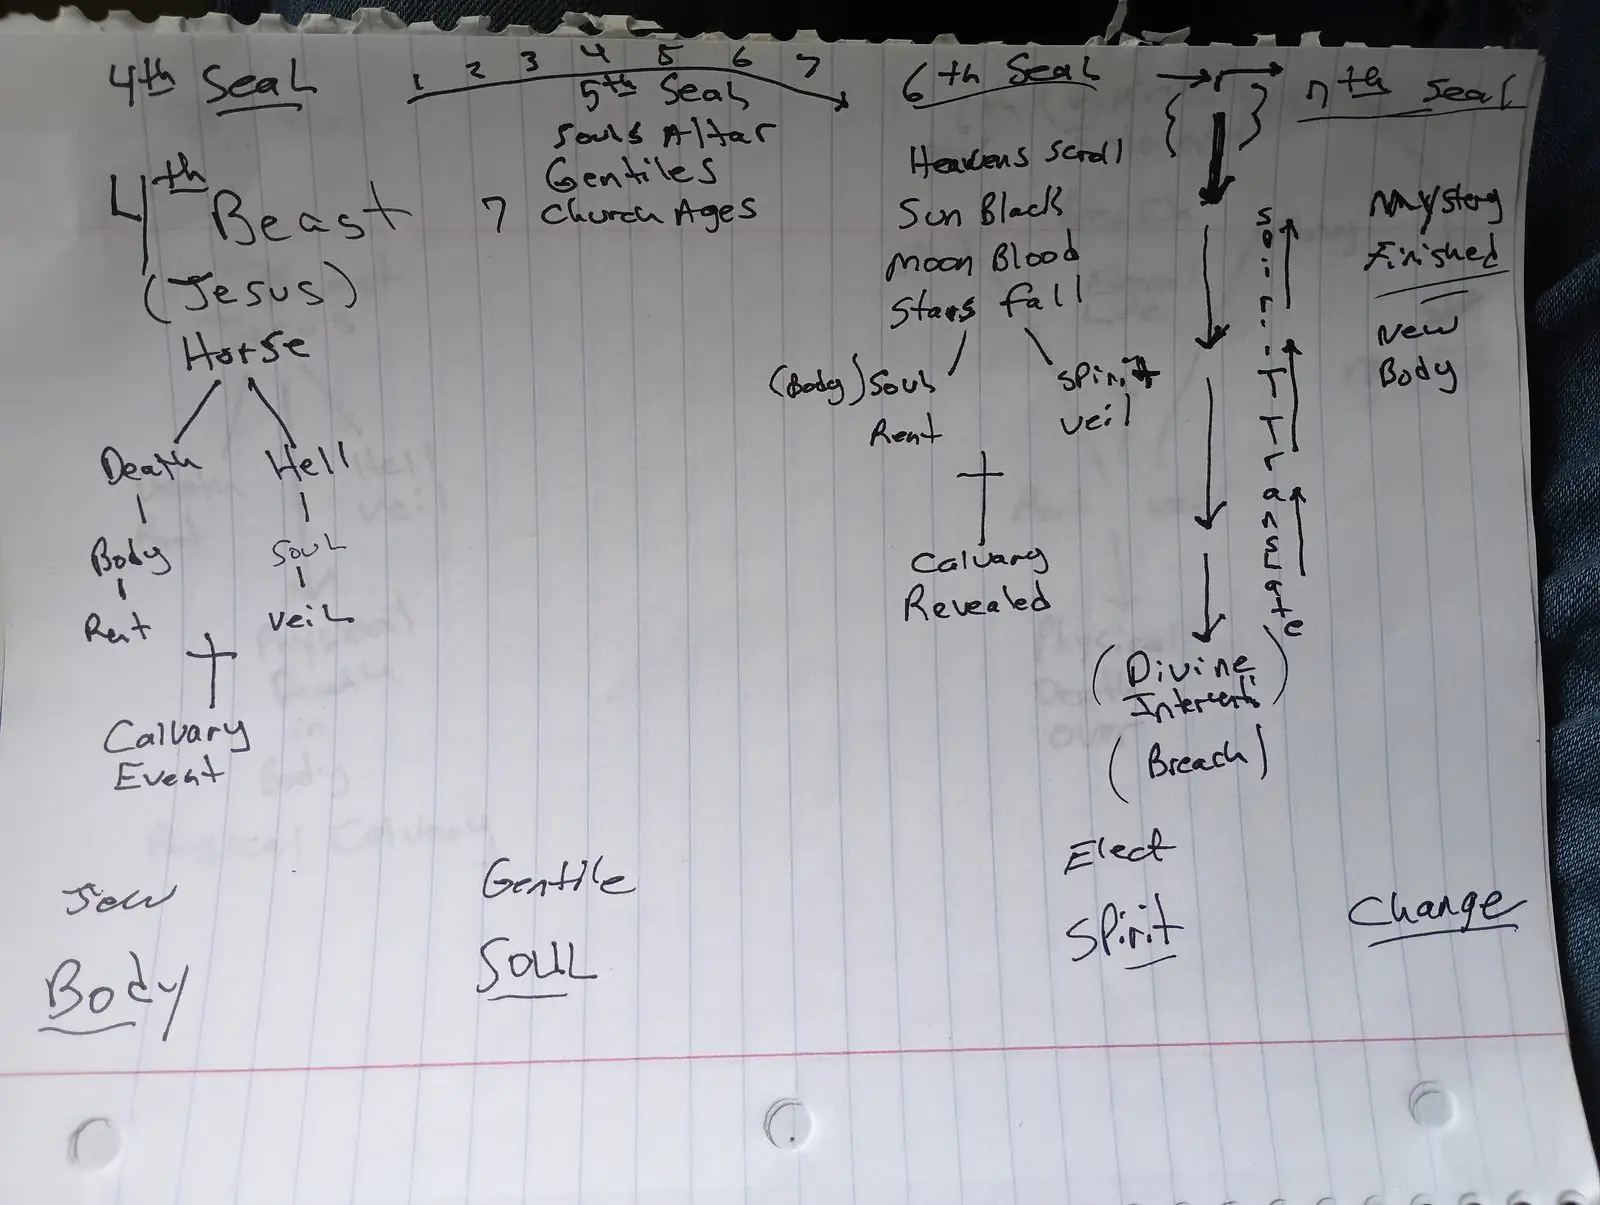 4th Seal
4th
Beast
(Jesus)
Horse
Death Hell
Body Soul
Rent Veil
Calvary
Event
Jew
Body
1 2 3 4 5 6 7
5th Seal
Souls Altar
Gentiles
7 Church Ages
Gentile
SOUL
6th Seal
Heavens Scroll
Sun Black
Moon Blood
Stars fall
(Body) Soul Spirit
Rent Veil
Calvary
Revealed
Spirit Translate
(Divine
(Breach)
Elect
Spirit
7th Seal
Mystery
Finished
New
Body
Change